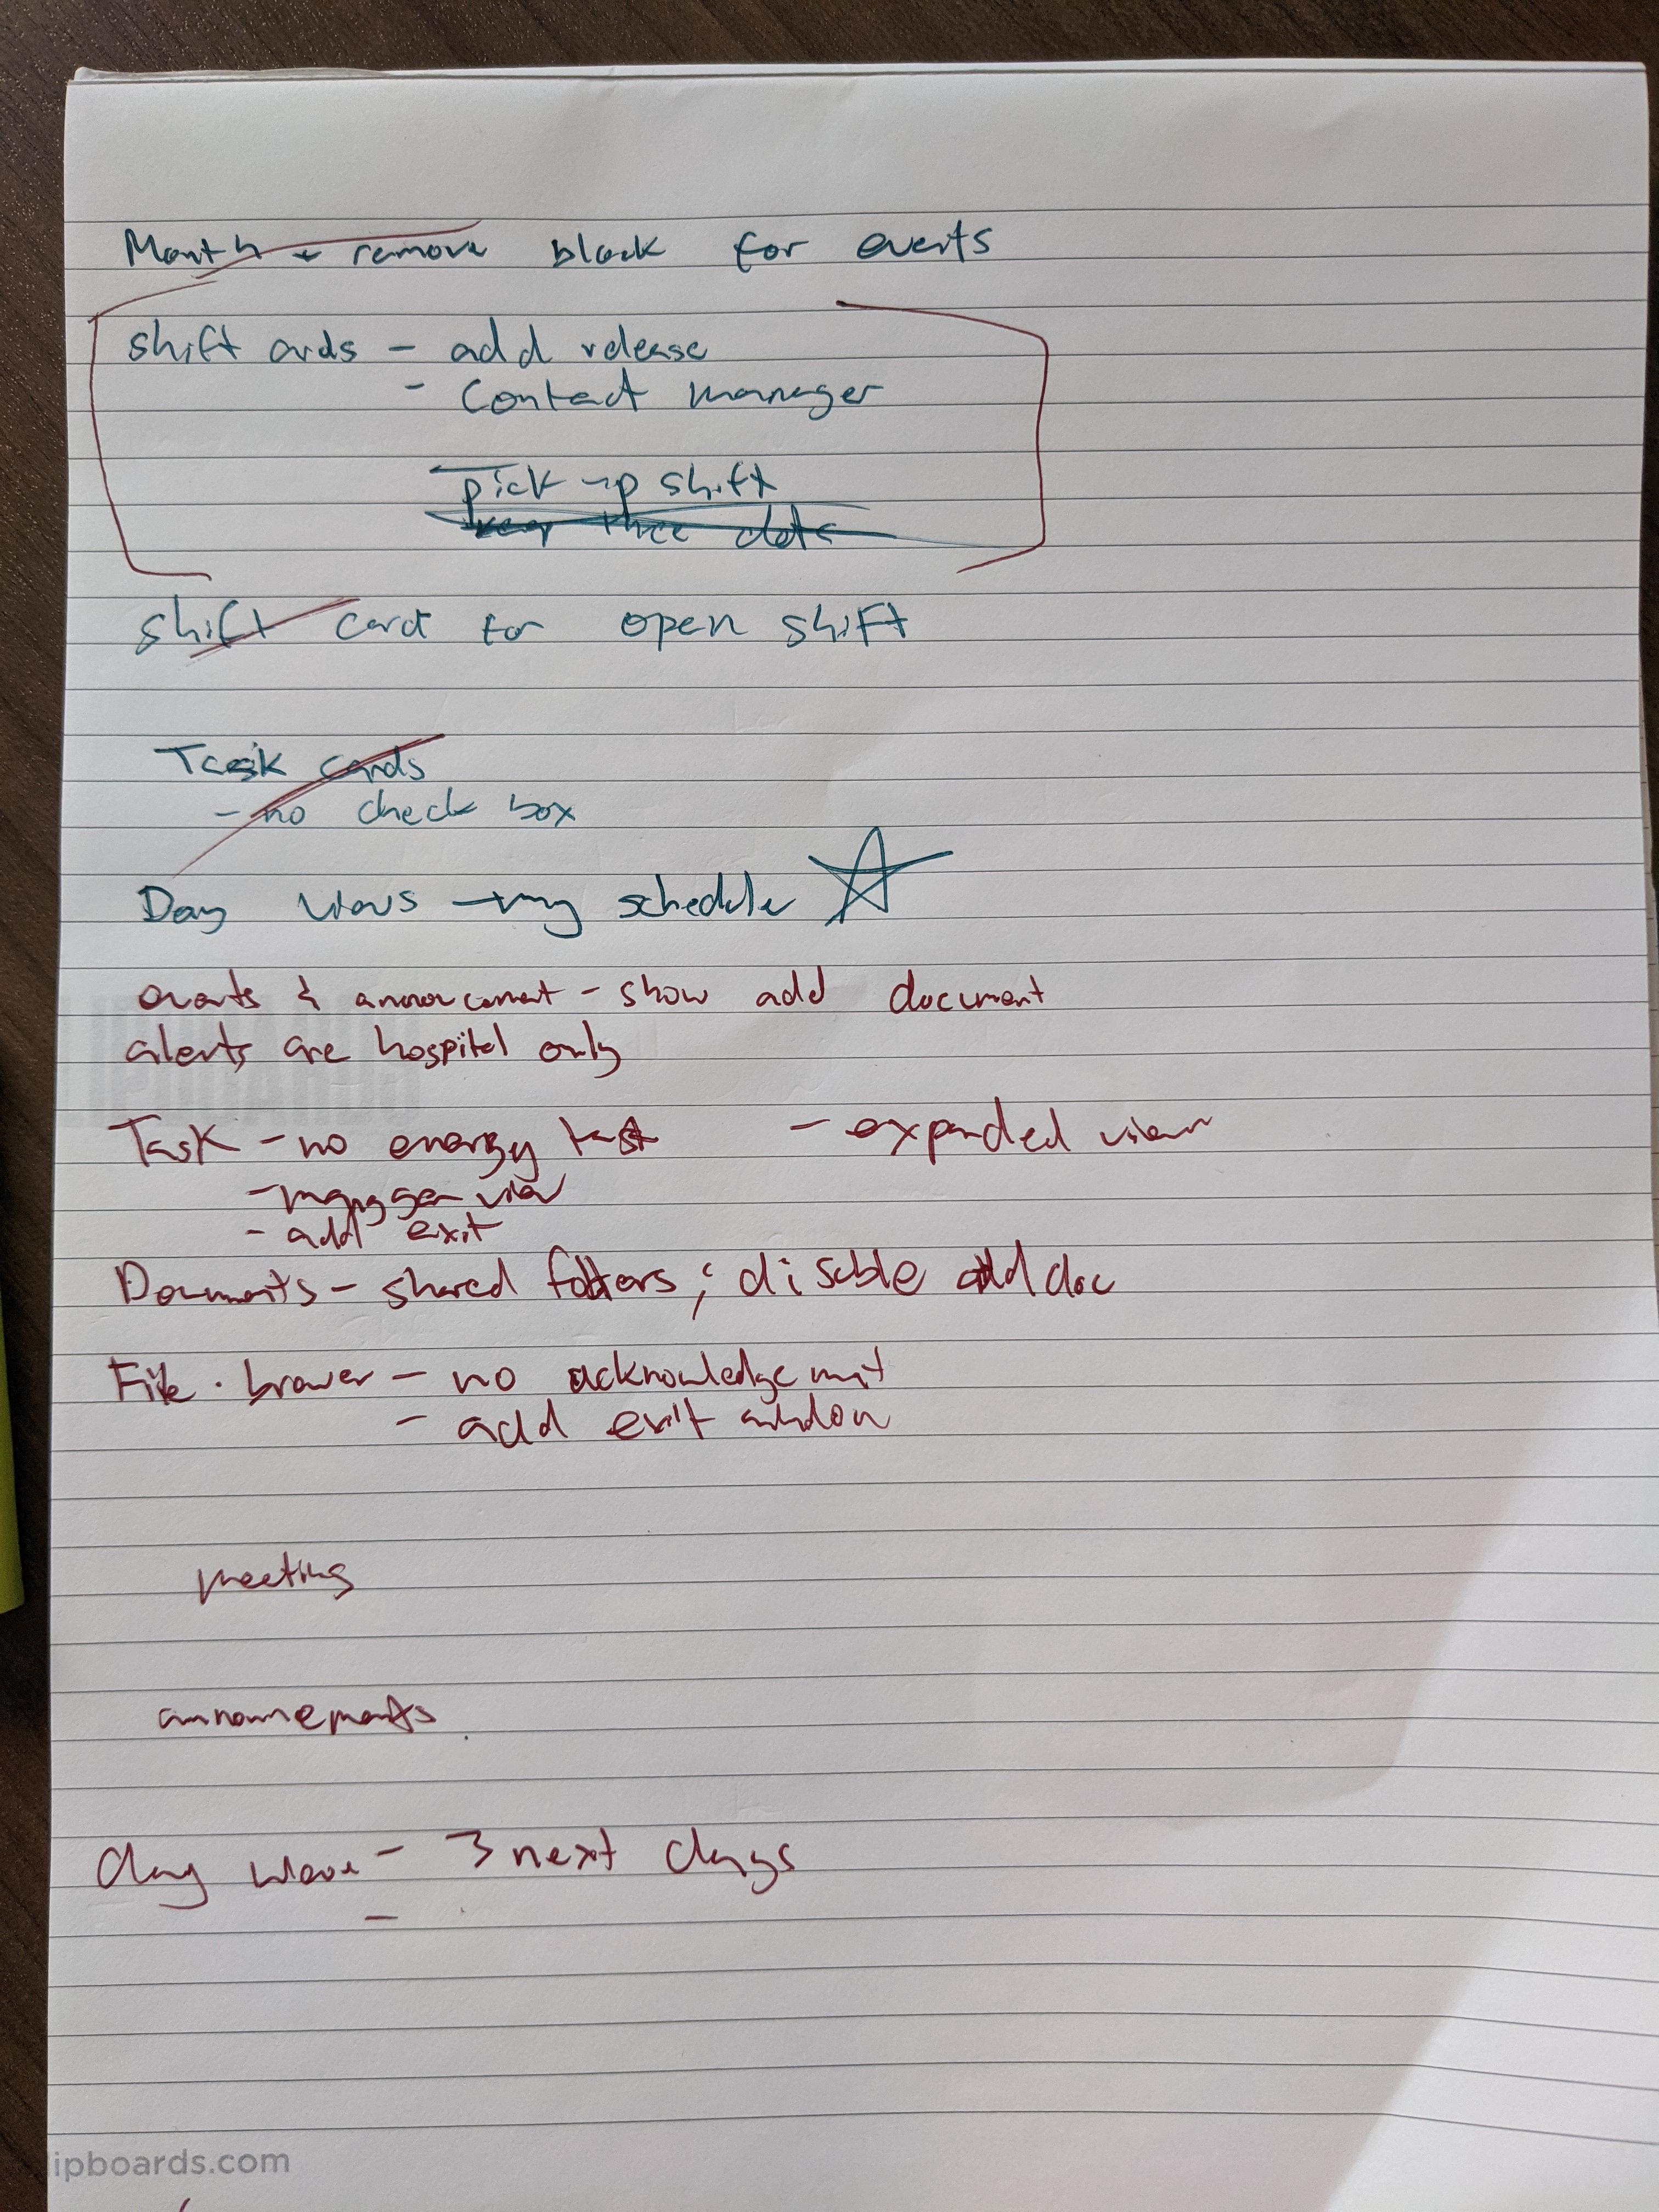 Month + remove block for events
shift cards - add release
- Contact manager
pick up shift
keep three dots
shift card for open shift
Task cards
- no check box
Day views - my schedule
events & announcement - show add document
alerts are hospital only
Task - no energy - expanded view
- view
- add exit
Documents - shared folders; disable add doc
File browser - no acknowledgement
- add exit window
meeting
announcements
day - 3 next days
-
lipboards.com